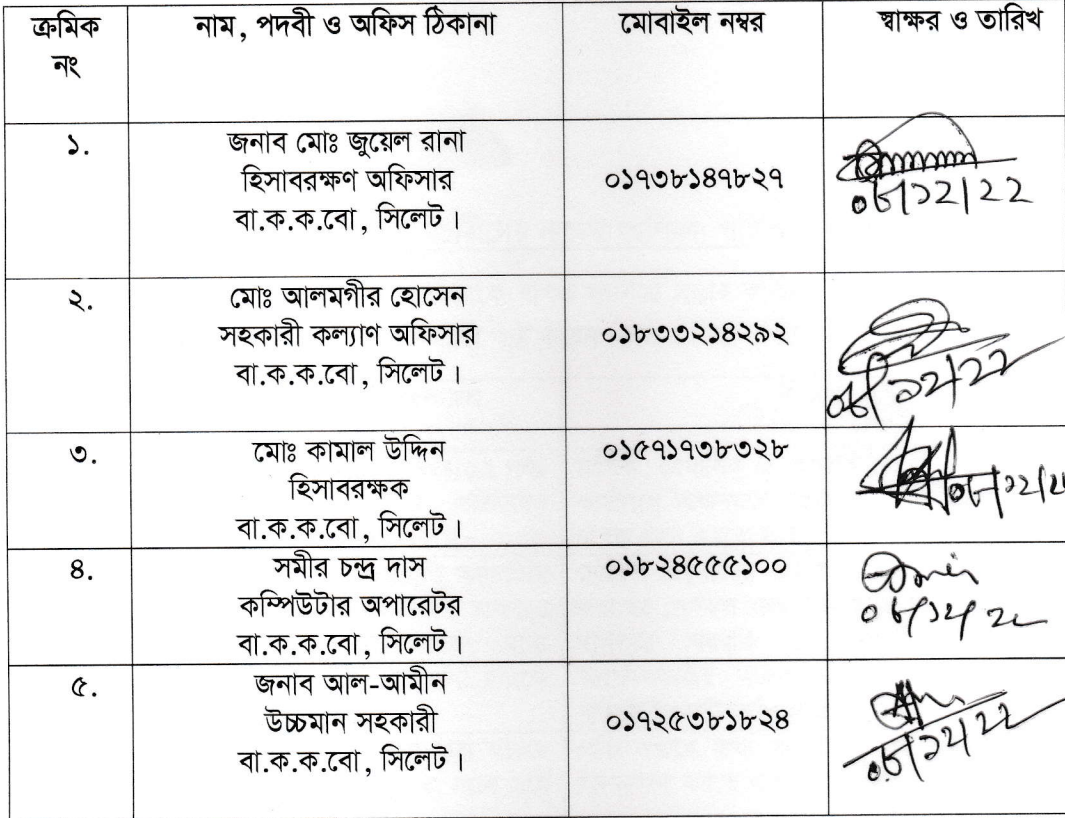 ক্রমিক নং | নাম, পদবী ও অফিস ঠিকানা | মোবাইল নম্বর | স্বাক্ষর ও তারিখ
১. | জনাব মোঃ জুয়েল রানা
হিসাবরক্ষণ অফিসার
বা.ক.ক.বো, সিলেট। | ০১৭৩৮১৪৭৮২৭ | ০৮/১২/২২
২. | মোঃ আলমগীর হোসেন
সহকারী কল্যাণ অফিসার
বা.ক.ক.বো, সিলেট। | ০১৮৩৩২১৪২৯২ | ০৮/১২/২২
৩. | মোঃ কামাল উদ্দিন
হিসাবরক্ষক
বা.ক.ক.বো, সিলেট। | ০১৫৭১৭৩৮৩২৮ | ০৮/১২/২
৪. | সমীর চন্দ্র দাস
কম্পিউটার অপারেটর
বা.ক.ক.বো, সিলেট। | ০১৮২৪৫৫৫১০০ | ০৮/১২/২২
৫. | জনাব আল-আমীন
উচ্চমান সহকারী
বা.ক.ক.বো, সিলেট। | ০১৭২৫৩৮১৮২৪ | ০৮/১২/২২